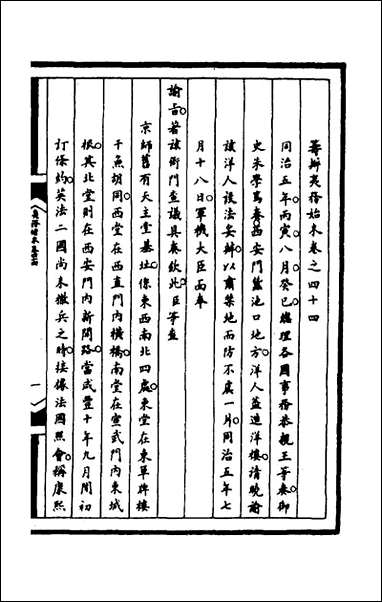 籌辦夷務始末卷之四十四
同治五年丙寅八月癸巳總理各國事務恭親王等奏御
史朱學篤奏西安門蠶池口地方洋人蓋造洋樓請曉諭
該洋人設法妥辦以肅禁地而防不虞一片同治五年七
月十八日軍機大臣面奉
諭旨著該衙門查議具奏欽此臣等查
京師舊有天主堂基址係東西南北四處東堂在東單牌樓
干魚胡同西堂在西直門內橫橋南堂在宣武門內東城
根其北堂則在西安門內新開路當咸豐十年九月間初
訂條約英法二國尚未撤兵之時接據法國照會稱康熙
一